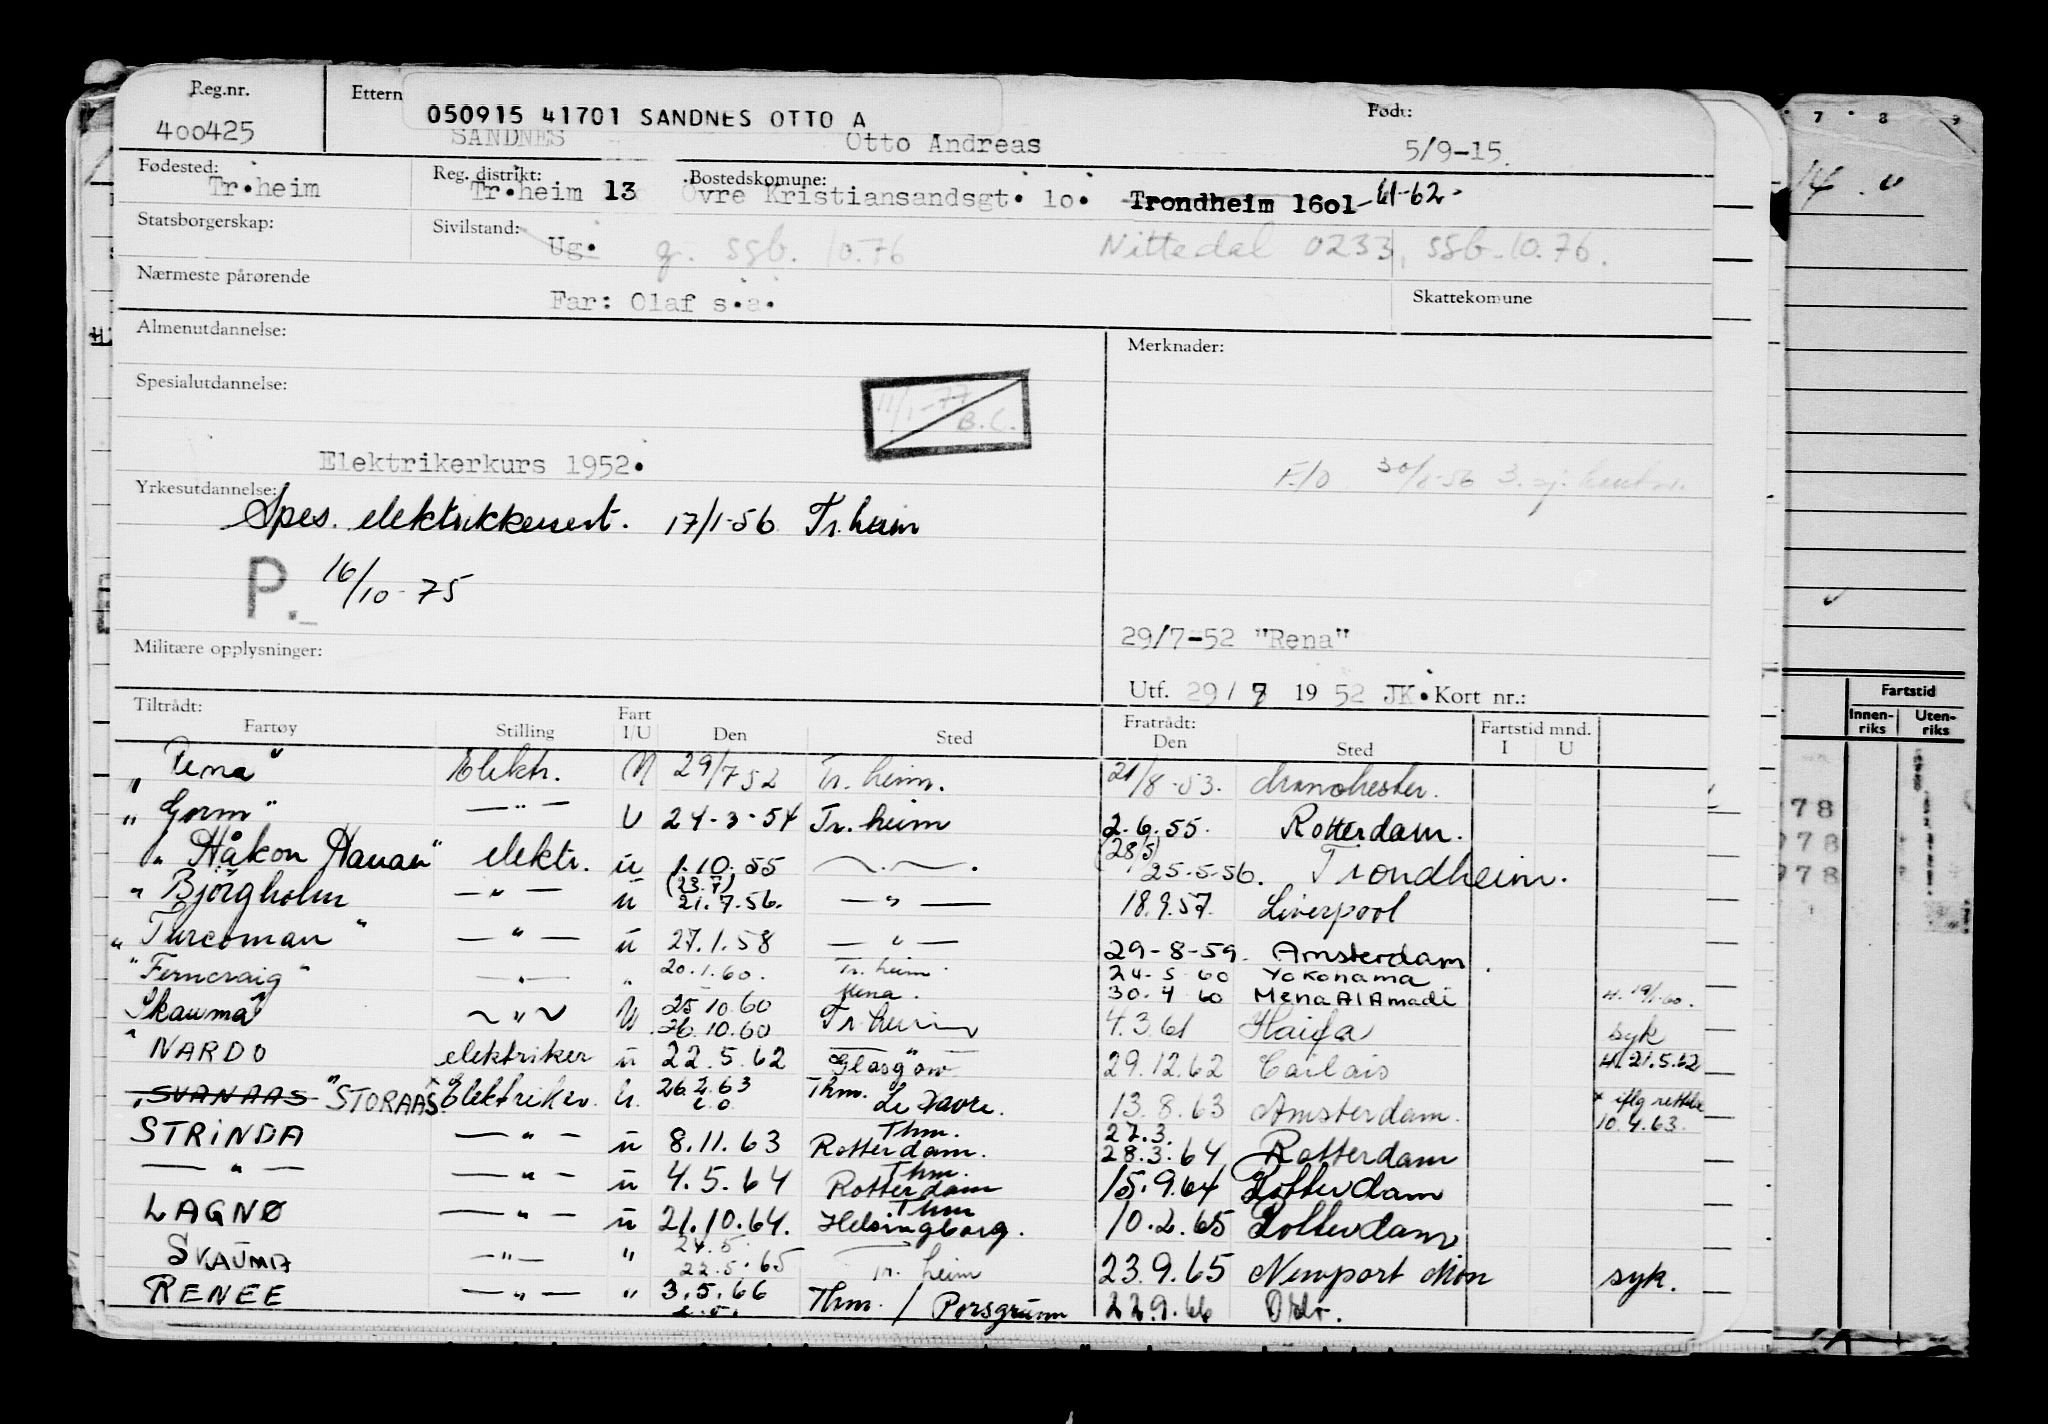 Reg.nr. Ettern Født:
050915 41701 SANDNES OTTO A
400425 SANDNES Otto Andreas 5/9-15.
Fødested: Reg. distrikt: Bostedskomune:
Tr.heim Tr.heim 13 Övre Kristiansandsgt. 1o. Trondheim 16o1 - 61-62.
Statsborgerskap: Sivilstand:
Ug. g. ssb. 10.76 Nittedal 0233, ssb. 10.76.
Nærmeste pårørende
Far: Olaf s.a. Skattekomune
Almenutdannelse: Merknader:
Spesialutdannelse:
11/1-77
B.C.
Elektrikerkurs 1952.
F/O 30/8-56 3.
Yrkesutdannelse:
Spes. elektrikkersert. 17/1-56 Tr.heim
P. 16/10-75
29/7-52 "Rena"
Militære opplysninger:
Utf. 29/7 1952 JK. Kort nr.:
Tiltrådt: Fratrådt:
Fartøy Stilling Fart I/U Den Sted Den Sted Fartstid mnd. I U
"Rena" Elektr. U 29/7 52 Tr. heim. 21/8-53. Manchester.
"Gorm" — " — U 24-3-54 Tr. heim 2.6.55. Rotterdam.
"Håkon Hauan" elektr. u 1.10.55 (28/5) 25.5.56. Trondheim.
"Björgholm — " — u (23.7) 21.7.56. — " — 18.9.57. Liverpool
"Turcoman" — " — u 27.1.58 — " — 29-8-59. Amsterdam.
"Ferncraig" — " — " 20.1.60. Tr. heim. 24. 5 60 Yokohama
Mena. 30. 4 60 Mena Al Amadi
"Skauma" ~ " ~ U 25 10.60 26.10.60 Tr. heim 4.3.61 Haifa syk
"NARDO elektriker u 22.5.62 Glasgow 29.12.62 Cailais H.21.5.62
"SVANAAS "STORAAS" Elektriker. u. 26.2.63 e.o. Thm. Le Havre. 13.8.63 Amsterdam. x iflg rettelse 10.4.63.
STRINDA — " — u 8.11.63 Thm. Rotterdam. 27.3. 28.3.64 Rotterdam
— " — — " — u 4.5.64 Thm. Rotterdam 15.9.64 Rotterdam
LAGNØ — " — u 21.10.64. Thm Helsingborg. 10.2.65 Rotterdam
SKAUMA — " — " 24.5 22.5.65 Tr. heim 23.9.65 Newport Mon syk.
RENEE — " — " 3.5.66 e.o. Thm. / Porsgrunn 22.9.66 Oslo.
7 8 9
14
Fartstid
Innen-
riks Uten-
riks
978
978
978